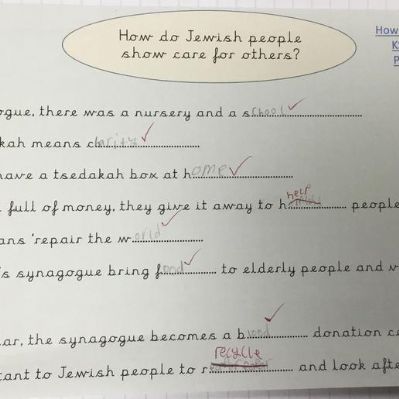 How do Jewish people
show care for others?
How
K
P
ogue, there was a nursery and a school
kah means charity
have a tsedakah box at home
full of money, they give it away to h help people
ans 'repair the world
's synagogue bring food to elderly people and v
ar, the synagogue becomes a blood donation ce
tant to Jewish people to r recycle and look afte